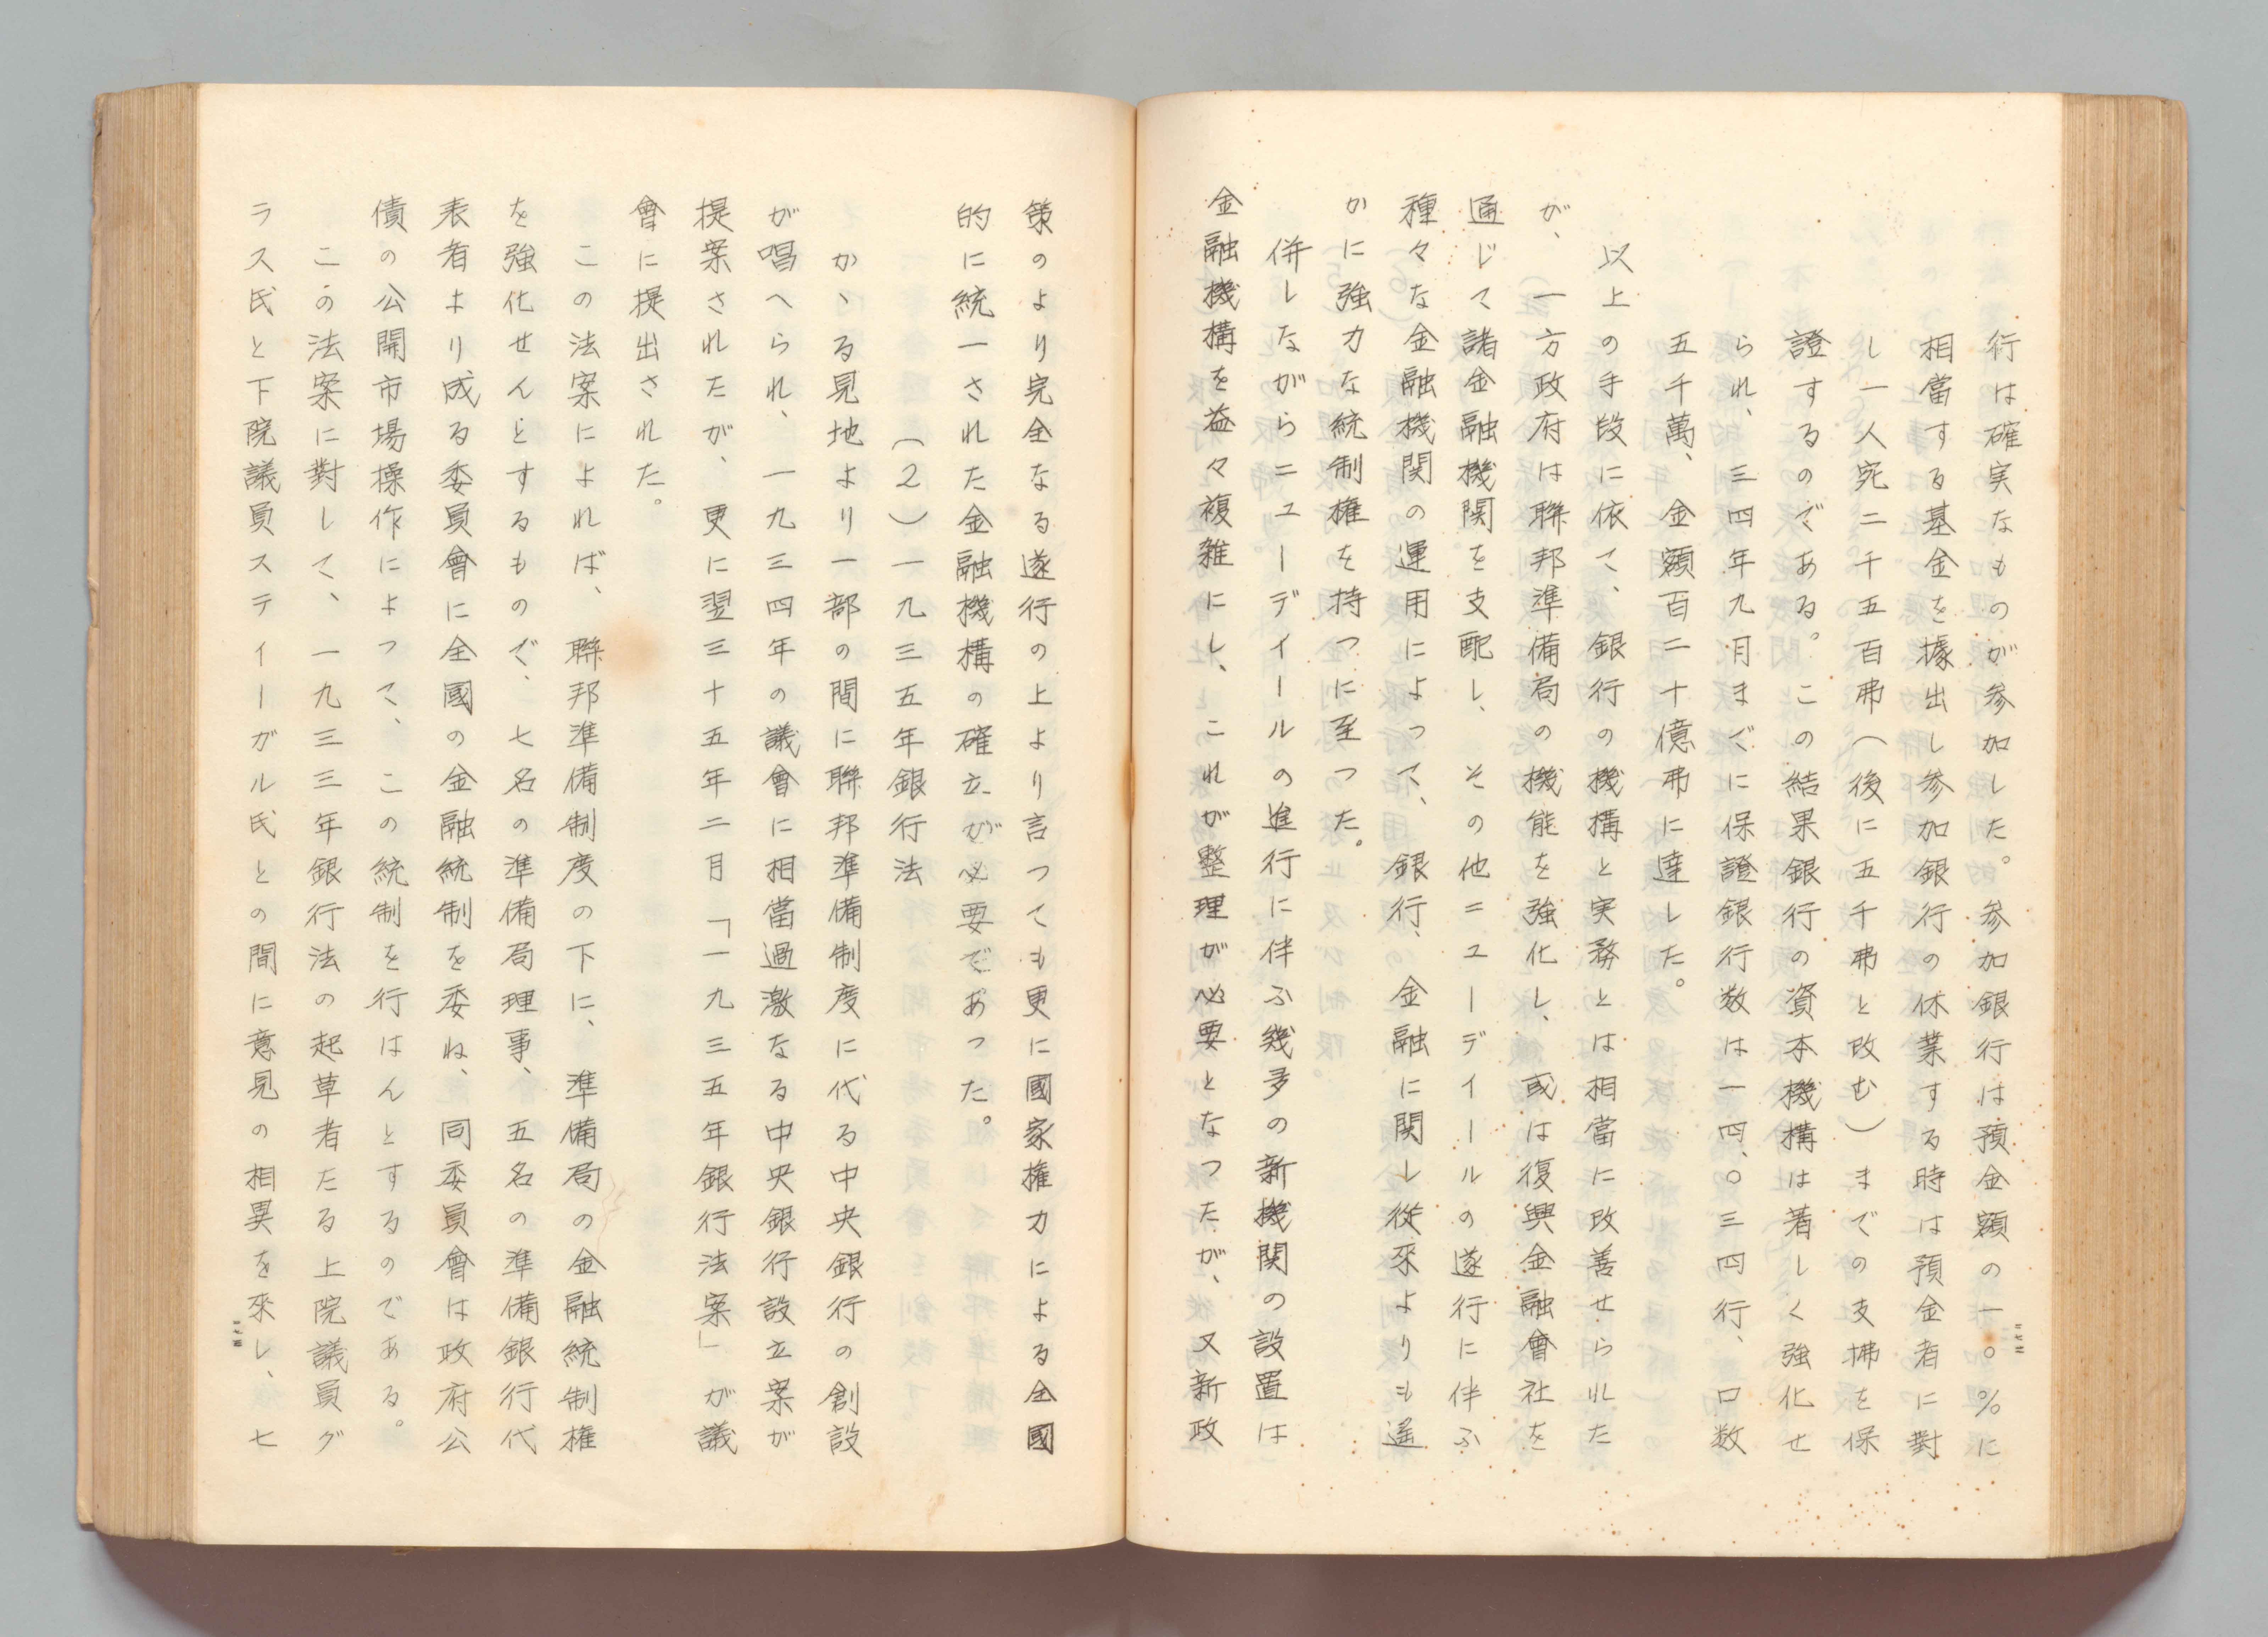 行は確実なものが参加した。参加銀行は預金額の一〇%に
相當する基金を據出し参加銀行の休業する時は預金者に對
し一人宛二千五百弗（後に五千弗と改む）までの支拂を保
證するのである。この結果銀行の資本機構は著しく強化せ
られ、三四年九月までに保證銀行数は一四、〇三四行、口数
五千萬、金額百二十億弗に達した。
以上の手段に依て、銀行の機構と実務とは相當に改善せられた
が、一方政府は聯邦準備局の機能を強化し、或は復興金融會社を
通じて諸金融機関を支配し、その他ニユーデイールの遂行に伴ふ
種々な金融機関の運用によって、銀行、金融に関し従來よりも遥
かに強力な統制権を持つに至つた。
併しながらニユーデイールの進行に伴ふ幾多の新機関の設置は
金融機構を益々複雑にし、これが整理が必要となつたが、又新政
策のより完全なる遂行の上より言つても更に國家権力による全國
的に統一された金融機構の確立が必要であつた。
（2）一九三五年銀行法
かゝる見地より一部の間に聯邦準備制度に代る中央銀行の創設
が唱へられ、一九三四年の議會に相當過激なる中央銀行設立案が
提案されたが、更に翌三十五年二月「一九三五年銀行法案」が議
會に提出された。
この法案によれば、聯邦準備制度の下に、準備局の金融統制権
を強化せんとするもので、七名の準備局理事、五名の準備銀行代
表者より成る委員會に全國の金融統制を委ね、同委員會は政府公
債の公開市場操作によつて、この統制を行はんとするのである。
この法案に對して、一九三三年銀行法の起草者たる上院議員グ
ラス氏と下院議員スティーガル氏との間に意見の相異を來し、七